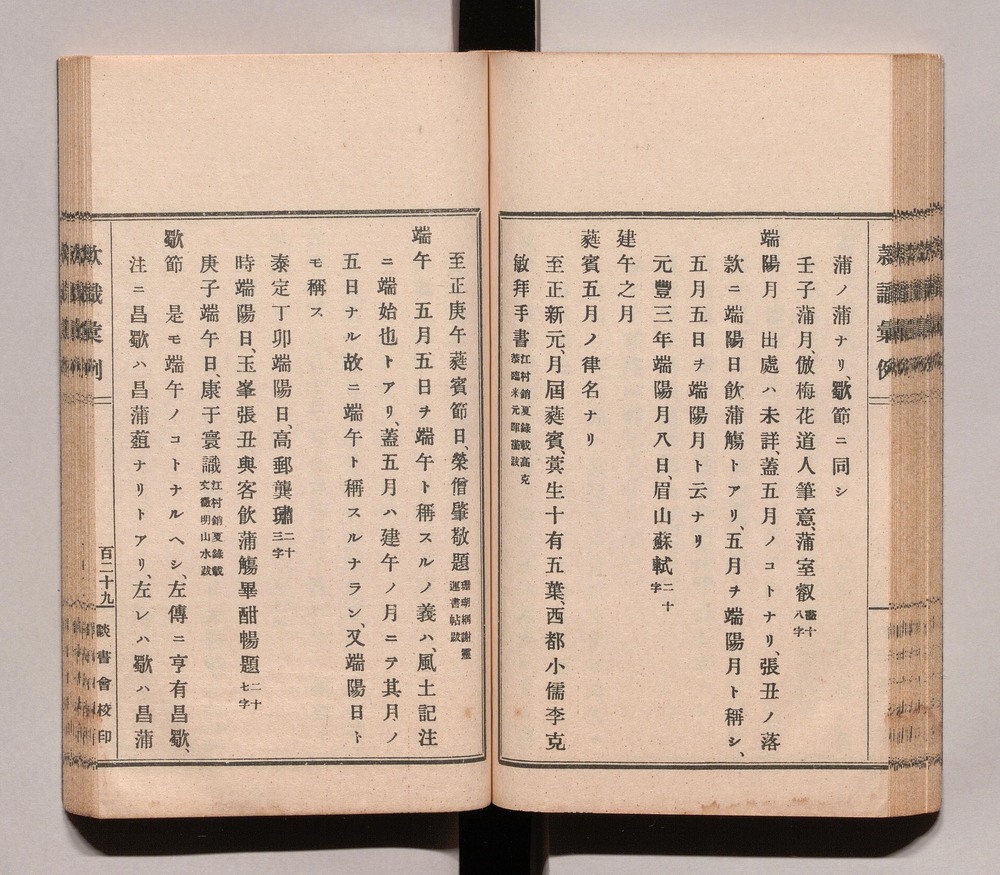 蒲ノ蒲ナリ、歜節ニ同シ
壬子蒲月、倣梅花道人筆意、蒲室叡
八字
端陽月 出處ハ未詳、蓋五月ノコトナリ、張丑ノ落
款ニ端陽日飮蒲觴トアリ、五月ヲ端陽月ト稱シ、
五月五日ヲ端陽月ト云ナリ
元豐三年端陽月八日、眉山蘇軾二十字
建午之月
蕤賓五月ノ律名ナリ
至正新元、月屆蕤賓、蓂生十有五葉、西都小儒李克
敏拜手書江村銷夏錄載高克
至正庚午蕤賓節日、榮僧肇敬題珊瑚網謝靈運書帖跋
端午 五月五日ヲ端午ト稱スルノ義ハ、風土記注
ニ端始也トアリ、蓋五月ハ建午ノ月ニテ其月ノ
五日ナル故ニ端午ト稱スルナラン、又端陽日ト
モ稱ス
泰定丁卯端陽日、高郵龔璛二十三字
時端陽日、玉峯張丑與客飮蒲觴畢酣暢題二十七字
庚子端午日、康于寰識江村銷夏錄載文徵明山水跋
歜節 是モ端午ノコトナルヘシ、左傳ニ亨有昌歜、
注ニ昌歜ハ昌蒲葅ナリトアリ、左レハ歜ハ昌蒲
百二十九
談書會校印